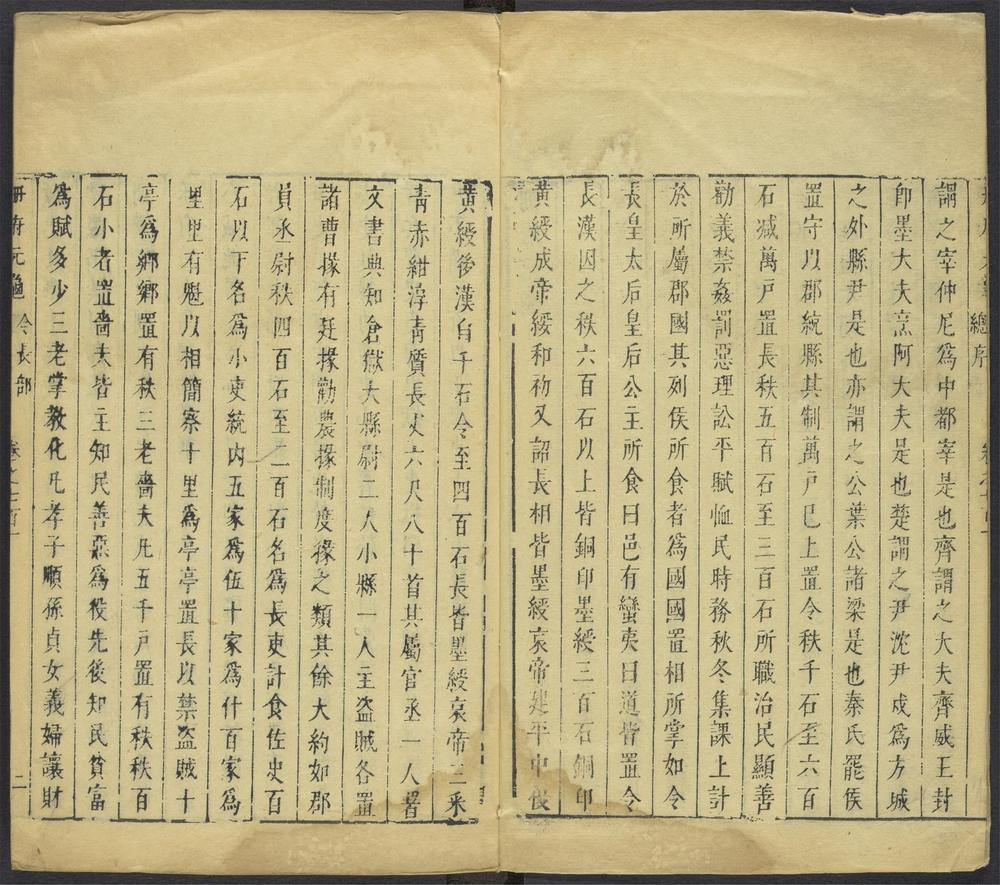 總序
謂之宰仲尼爲中都宰是也齊謂之大夫齊威王封
卽墨大夫烹阿大夫是也楚謂之尹沈尹戍爲方城
之外縣尹是也亦謂之公葉公諸梁是也秦氏罷侯
置守以郡統縣其制萬戸已上置令秩千石至六百
石减萬戸置長秩五百石至三百石所職治民顯善
勸義禁姦罰惡理訟平賦恤民時務秋冬集課上計
於所屬郡國其列侯所食者為國國置相所掌如令
長皇太后皇后公主所食曰邑有蠻夷曰道皆置令
長漢因之秩六百石以上皆銅印墨綬三百石銅印
黃綬成帝綏和初又詔長相皆墨綬哀帝建平中復
黃綬後漢自千石令至四百石長皆墨綬哀帝三采
青赤紺淳青質長丈六尺八十首其屬官丞一人署
文書典知倉獄大縣尉二人小縣一人主盜賊各置
諸曹掾有廷掾勸農掾制度掾之類其餘大約如郡
貟丞尉秩四百石至二百石名爲長吏計食佐史百
石以下名爲小吏統内五家爲伍十家爲什百家爲
里里有魁以相簡察十里爲亭亭置長以禁盜賊十
亭爲鄉鄉置有秩三老嗇夫凡五千戸置有秩秩百
石小者置嗇夫皆主知民善惡爲役先後知民貧富
爲賦多少三老掌教化凡孝子順孫貞女義婦讓財
冊府元龜 令長部 卷之七百一 二